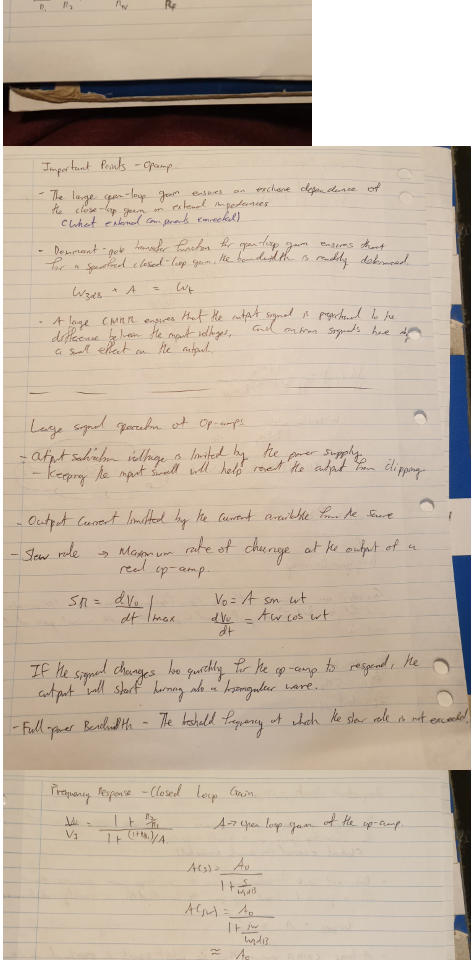 R1 R2 RN RF
Important Points - Opamp
- The large open-loop gain ensures an exclusive dependence of
the close-loop gain on external impedances
(What external components connected)
- Dominant-pole transfer function for open-loop gain ensures that
for a specified closed-loop gain, the bandwidth is readily determined.
W3dB * A = Wt
- A large CMRR ensures that the output signal is proportional to the
difference between the input voltages, and common signals have only
a small effect on the output.
Large signal operation of Op-amps
- Output saturation voltage is limited by the power supply
- Keeping the input small will help prevent the output from clipping
- Output current limitted by the current available from the source
- Slew rate → Maximum rate of change at the output of a
real op-amp.
SR = dVo/dt |max Vo = A sin wt
dVo/dt = Aw cos wt
If the signal changes too quickly for the op-amp to respond, the
output will start turning into a triangular wave.
- Full-power Bandwidth - The treshold frequency at which the slew rate is not exceeded.
Frequency Response - Closed Loop Gain
= 1 + R2/R1 / 1 + (1+R2/R1)/A A → open loop gain of the op-amp.
A(s) = Ao / 1 + s/W3dB
A(jw) = Ao / 1 + jw/W3dB
≈ Ao